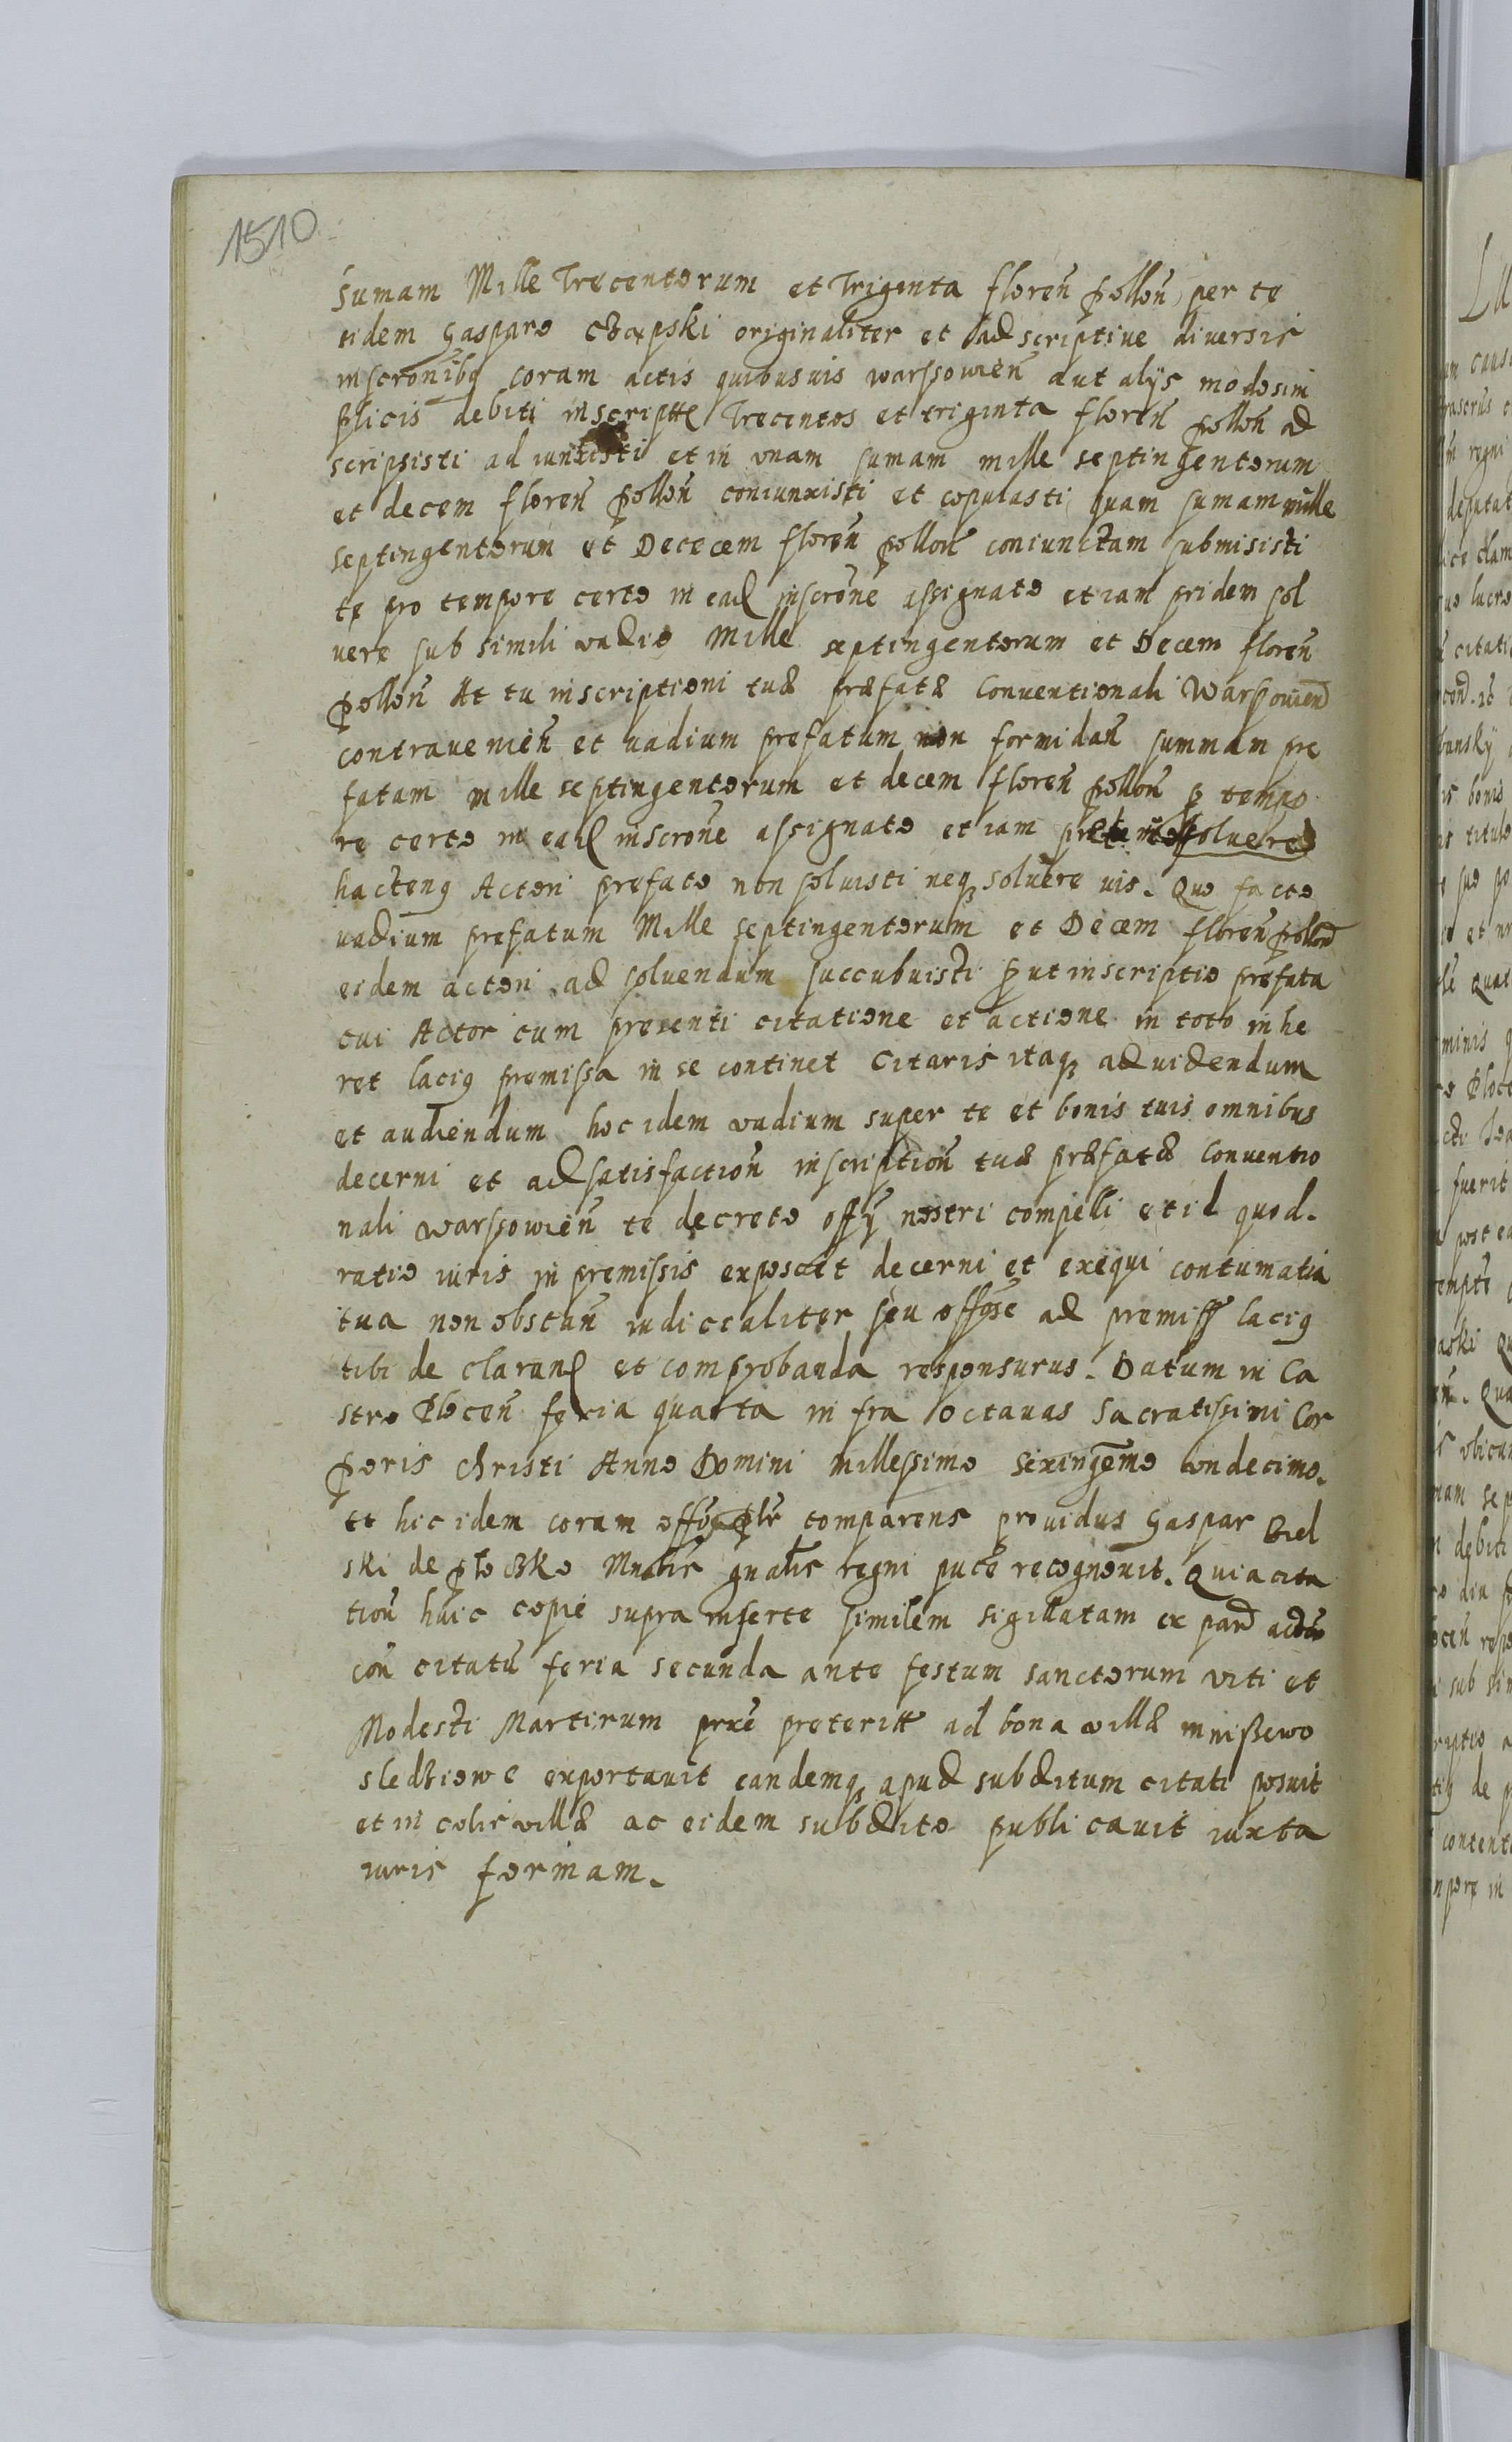 1510
Sumam Mille Trecentorum et Triginta floren̄ pollon̄ per te
eidem Gaspare Czapski originaliter et adscriptive diversis
inscronibꝫ coram actis quibusvis warssouien̄ aut alijs modo simi
plicis debiti inscriptt Trecentos et triginta floren̄ pollon̄ ad
scripsisti ad iunxisti et in unam sumam mille septingentorum
et decem floren̄ pollon̄ coniunxisti et copulasti quam sumam mille
septingentorum et Dececem floren̄ pollon̄ coniunctam submisisti
te pro tempore certo in ead inscrone assignato etiam pridem sol
vere sub simili vadio Mille septingentorum et Decem floren̄
pollon̄ At tu inscriptioni tuæ præfatæ Conventionali Warssouien
contravenien̄ et vadium prefatum non formidan̄ summam pre
fatam mille septingentorum et decem floren̄ pollon̄ p tempo
re certo in ead inscrone assignato etiam soluere
hactenꝰ Actori prefato non solvisti neqꝫ solvere vis. Quo facto
vadium prefatum Mille septingentorum et Decem floren̄ pollon
eidem actori ad solvendum succubuisti put inscriptio prefata
cui Actor cum presenti citatione et actione in toto inhe
ret laciꝰ premissa in se continet Citaris itaqꝫ ad videndum
et audiendum hoc idem vadium super te et bonis tuis omnibus
decerni et ad satisfaction̄ inscription̄ tuæ præfatæ Conventio
nali warssowien̄ te decreto offÿ nostri compelli et id quod.
ratio iuris in premissis exposcet decerni et exequi contumatia
tua non obstan̄ iudiccaliter seu offose ad premiss laciꝰ
tibi de claran et comprobanda responsurus. Datum in Ca
stro Plocen̄ feria quarta in fra octavas Sacratissimi Cor
poris christi Anno Domini millessimo sexingemo undecimo.
et hic idem coram offo plr comparens providus Gaspar Biel
ski de Płoczko Mnstris gnalis regni puce recognovit. Quia cita
tion̄ huic copie supra inserte similem sigillatam ex part
con̄ citatu feria secunda ante festum sanctorum viti et
Modesti Martirum prxe preteritt ad bona villæ mnissewo
sledziowe exportavit eandemqꝫ apud subditum citati posuit
et in colis villæ ac eidem subdito publicavit iuxta
iuris formam.